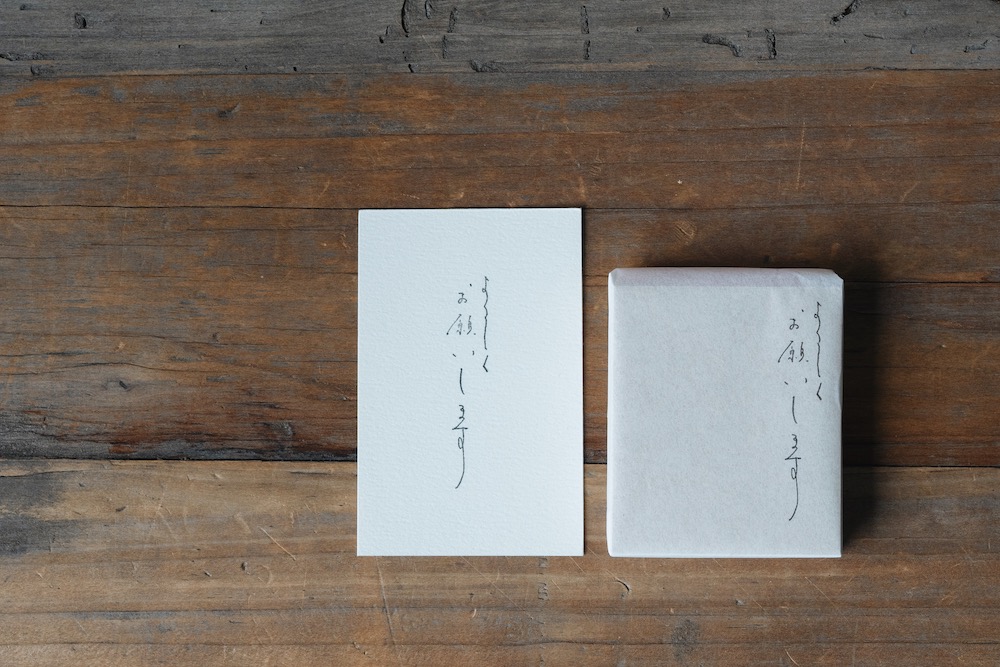 よろしく
お願いします
よろしく
お願いします